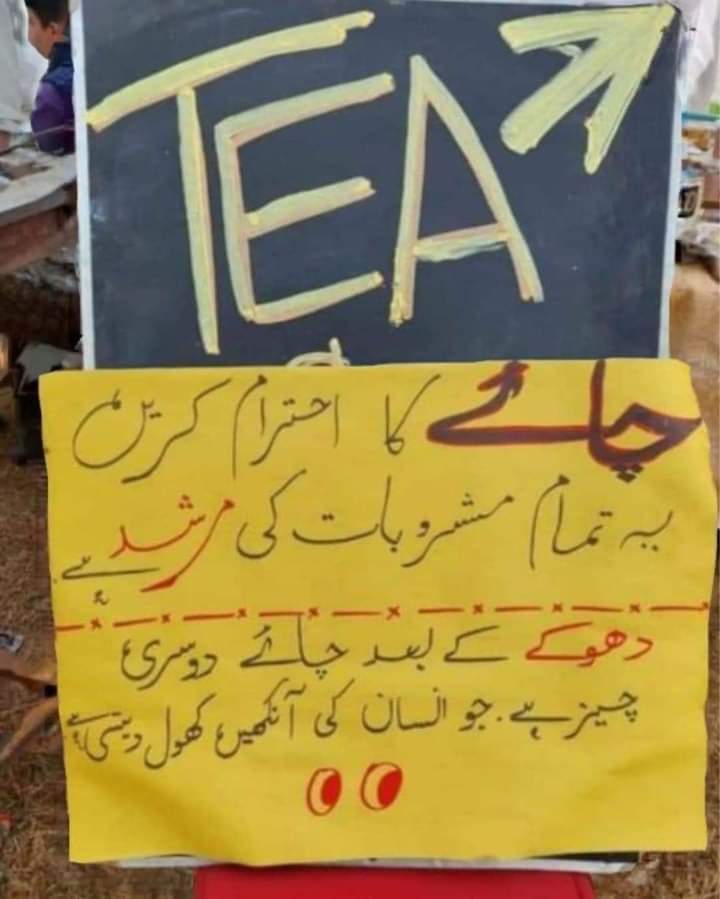 TEA
چائے کا احترام کریں
یہ تمام مشروبات کی مرشد ہے۔
دھوکے کے بعد چائے دوسری
چیز ہے۔ جو انسان کی آنکھیں کھول دیتی ہے